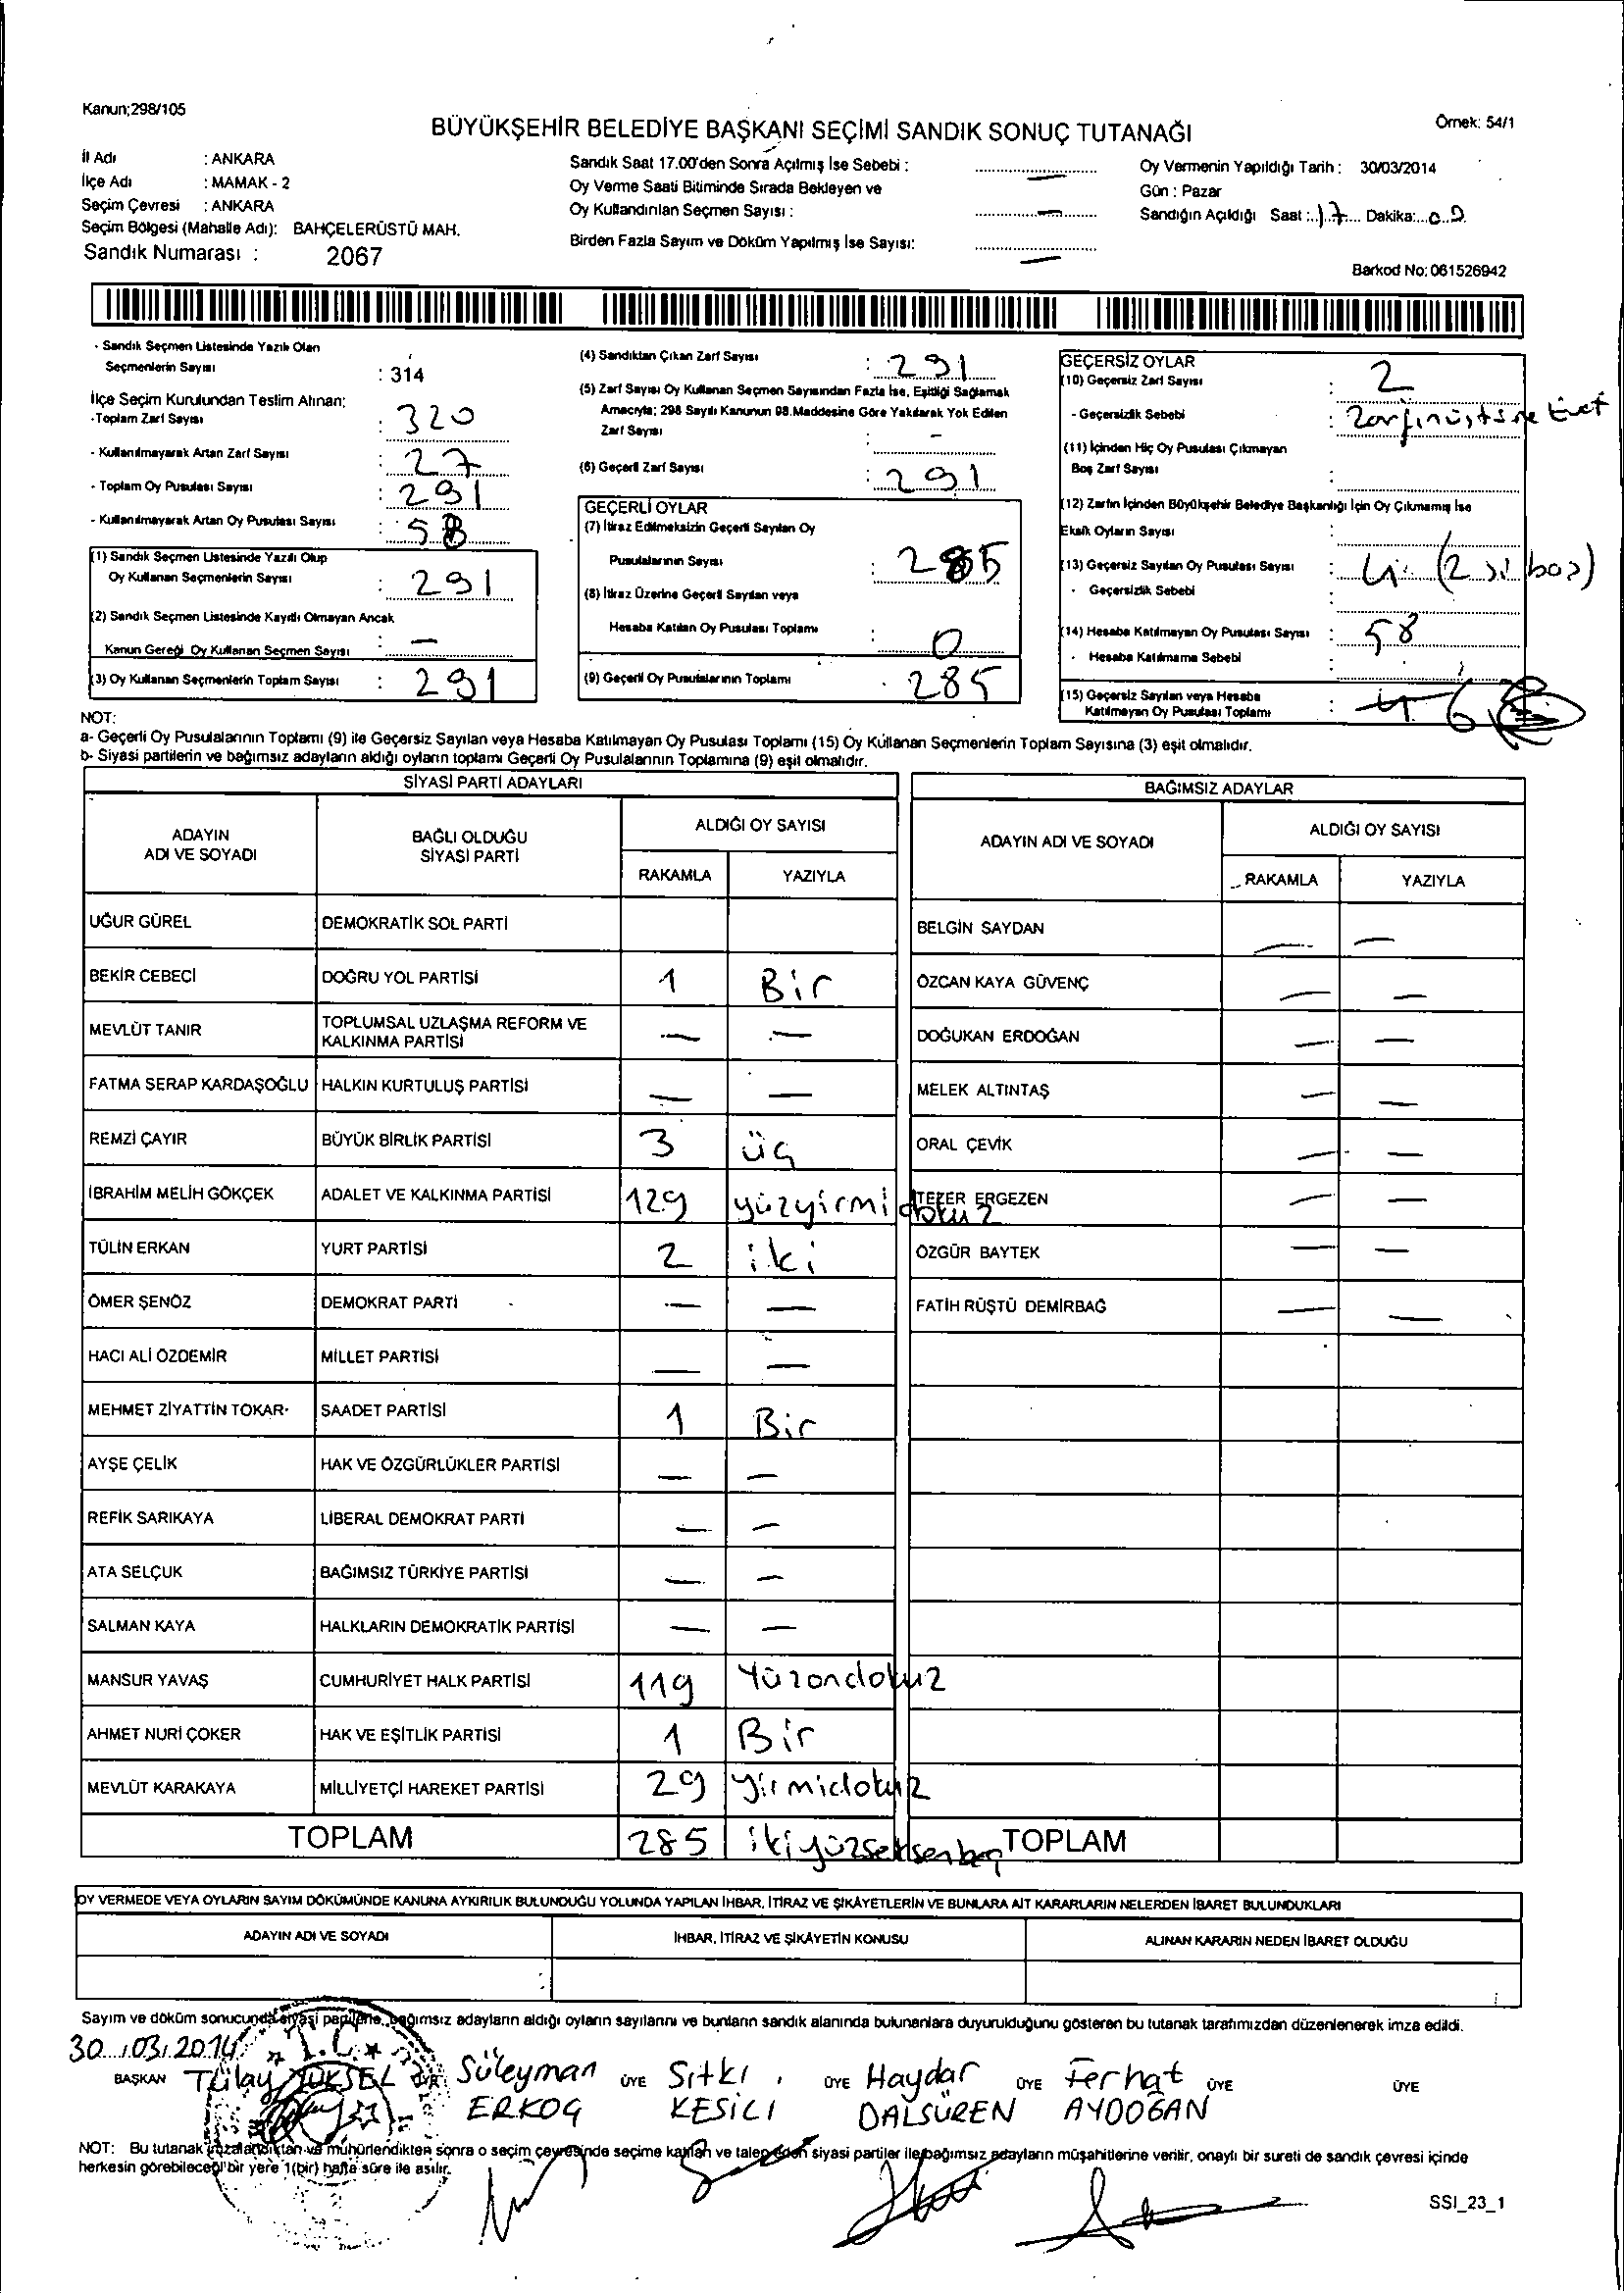 Kanun;298/105
BÜYÜKŞEHİR BELEDİYE BAŞKANI SEÇİMİ SANDIK SONUÇ TUTANAĞI
Örnek: 54/1
İl Adı : ANKARA
İlçe Adı : MAMAK - 2
Seçim Çevresi : ANKARA
Seçim Bölgesi (Mahalle Adı): BAHÇELERÜSTÜ MAH.
Sandık Numarası : 2067
Sandık Saat 17.00'den Sonra Açılmış İse Sebebi : —
Oy Verme Saati Bitiminde Sırada Bekleyen ve
Oy Kullandırılan Seçmen Sayısı : —
Birden Fazla Sayım ve Döküm Yapılmış İse Sayısı: —
Oy Vermenin Yapıldığı Tarih : 30/03/2014
Gün : Pazar
Sandığın Açıldığı Saat :..17.... Dakika:...09.
Barkod No: 061526942
- Sandık Seçmen Listesinde Yazılı Olan
Seçmenlerin Sayısı : 314
İlçe Seçim Kurulundan Teslim Alınan;
-Toplam Zarf Sayısı : 320
- Kullanılmayarak Artan Zarf Sayısı : 27
- Toplam Oy Pusulası Sayısı : 291
- Kullanılmayarak Artan Oy Pusulası Sayısı : 58
(1) Sandık Seçmen Listesinde Yazılı Olup
Oy Kullanan Seçmenlerin Sayısı : 291
(2) Sandık Seçmen Listesinde Kayıtlı Olmayan Ancak
Kanun Gereği Oy Kullanan Seçmen Sayısı : —
(3) Oy Kullanan Seçmenlerin Toplam Sayısı : 291
(4) Sandıktan Çıkan Zarf Sayısı : 291
(5) Zarf Sayısı Oy Kullanan Seçmen Sayısından Fazla İse, Eşitliği Sağlamak
Amacıyla; 298 Sayılı Kanunun 98.Maddesine Göre Yakılarak Yok Edilen
Zarf Sayısı : -
(6) Geçerli Zarf Sayısı : 291
GEÇERLİ OYLAR
(7) İtiraz Edilmeksizin Geçerli Sayılan Oy
Pusulalarının Sayısı : 285
(8) İtiraz Üzerine Geçerli Sayılan veya
Hesaba Katılan Oy Pusulası Toplamı : 0
(9) Geçerli Oy Pusulalarının Toplamı : 285
GEÇERSİZ OYLAR
(10) Geçersiz Zarf Sayısı : 2
- Geçersizlik Sebebi : Zarfın üstüne Evet
(11) İçinden Hiç Oy Pusulası Çıkmayan
Boş Zarf Sayısı :
(12) Zarfın İçinden Büyükşehir Belediye Başkanlığı İçin Oy Çıkmamış İse
Eksik Oyların Sayısı :
(13) Geçersiz Sayılan Oy Pusulası Sayısı : 4 (2 si boş)
- Geçersizlik Sebebi :
(14) Hesaba Katılmayan Oy Pusulası Sayısı : 58
- Hesaba Katılmama Sebebi :
(15) Geçersiz Sayılan veya Hesaba
Katılmayan Oy Pusulası Toplamı : 6
NOT:
a- Geçerli Oy Pusulalarının Toplamı (9) ile Geçersiz Sayılan veya Hesaba Katılmayan Oy Pusulası Toplamı (15) Oy Kullanan Seçmenlerin Toplam Sayısına (3) eşit olmalıdır.
b- Siyasi partilerin ve bağımsız adayların aldığı oyların toplamı Geçerli Oy Pusulalarının Toplamına (9) eşit olmalıdır.
SİYASİ PARTİ ADAYLARI
ADAYIN ADI VE SOYADI BAĞLI OLDUĞU SİYASİ PARTİ ALDIĞI OY SAYISI
RAKAMLA YAZIYLA
UĞUR GÜREL DEMOKRATİK SOL PARTİ
BEKİR CEBECİ DOĞRU YOL PARTİSİ 1 Bir
MEVLÜT TANIR TOPLUMSAL UZLAŞMA REFORM VE KALKINMA PARTİSİ — —
FATMA SERAP KARDAŞOĞLU HALKIN KURTULUŞ PARTİSİ — —
REMZİ ÇAYIR BÜYÜK BİRLİK PARTİSİ 3 üç
İBRAHİM MELİH GÖKÇEK ADALET VE KALKINMA PARTİSİ 129 yüzyirmidokuz
TÜLİN ERKAN YURT PARTİSİ 2 iki
ÖMER ŞENÖZ DEMOKRAT PARTİ — —
HACI ALİ ÖZDEMİR MİLLET PARTİSİ — —
MEHMET ZİYATTİN TOKAR SAADET PARTİSİ 1 Bir
AYŞE ÇELİK HAK VE ÖZGÜRLÜKLER PARTİSİ — —
REFİK SARIKAYA LİBERAL DEMOKRAT PARTİ — —
ATA SELÇUK BAĞIMSIZ TÜRKİYE PARTİSİ — —
SALMAN KAYA HALKLARIN DEMOKRATİK PARTİSİ — —
MANSUR YAVAŞ CUMHURİYET HALK PARTİSİ 119 Yüzondokuz
AHMET NURİ ÇOKER HAK VE EŞİTLİK PARTİSİ 1 Bir
MEVLÜT KARAKAYA MİLLİYETÇİ HAREKET PARTİSİ 29 Yirmidokuz
TOPLAM 285 ikiyüzseksenbeş
BAĞIMSIZ ADAYLAR
ADAYIN ADI VE SOYADI ALDIĞI OY SAYISI
RAKAMLA YAZIYLA
BELGİN SAYDAN — —
ÖZCAN KAYA GÜVENÇ — —
DOĞUKAN ERDOĞAN — —
MELEK ALTINTAŞ — —
ORAL ÇEVİK — —
TEZER ERGEZEN — —
ÖZGÜR BAYTEK — —
FATİH RÜŞTÜ DEMİRBAĞ — —
TOPLAM
OY VERMEDE VEYA OYLARIN SAYIM DÖKÜMÜNDE KANUNA AYKIRILIK BULUNDUĞU YOLUNDA YAPILAN İHBAR, İTİRAZ VE ŞİKÂYETLERİN VE BUNLARA AİT KARARLARIN NELERDEN İBARET BULUNDUKLARI
ADAYIN ADI VE SOYADI İHBAR, İTİRAZ VE ŞİKÂYETİN KONUSU ALINAN KARARIN NEDEN İBARET OLDUĞU
Sayım ve döküm sonucunda siyasi partilerle, bağımsız adayların aldığı oyların sayılarını ve bunların sandık alanında bulunanlara duyurulduğunu gösteren bu tutanak tarafımızdan düzenlenerek imza edildi.
30/03/2014
T.C.
BAŞKAN Tülay YÜKSEL Süleyman ÜYE Sıtkı ÜYE Haydar ÜYE Ferhat ÜYE ÜYE
ERKOÇ KESİCİ DALSÜREN AYDOĞAN
NOT: Bu tutanak imzalandıktan ve mühürlendikten sonra o seçim çevresinde seçime katılan ve talep eden siyasi partiler ile bağımsız adayların müşahitlerine verilir, onaylı bir sureti de sandık çevresi içinde
herkesin görebileceği bir yere 1(bir) hafta süre ile asılır.
SSI_23_1